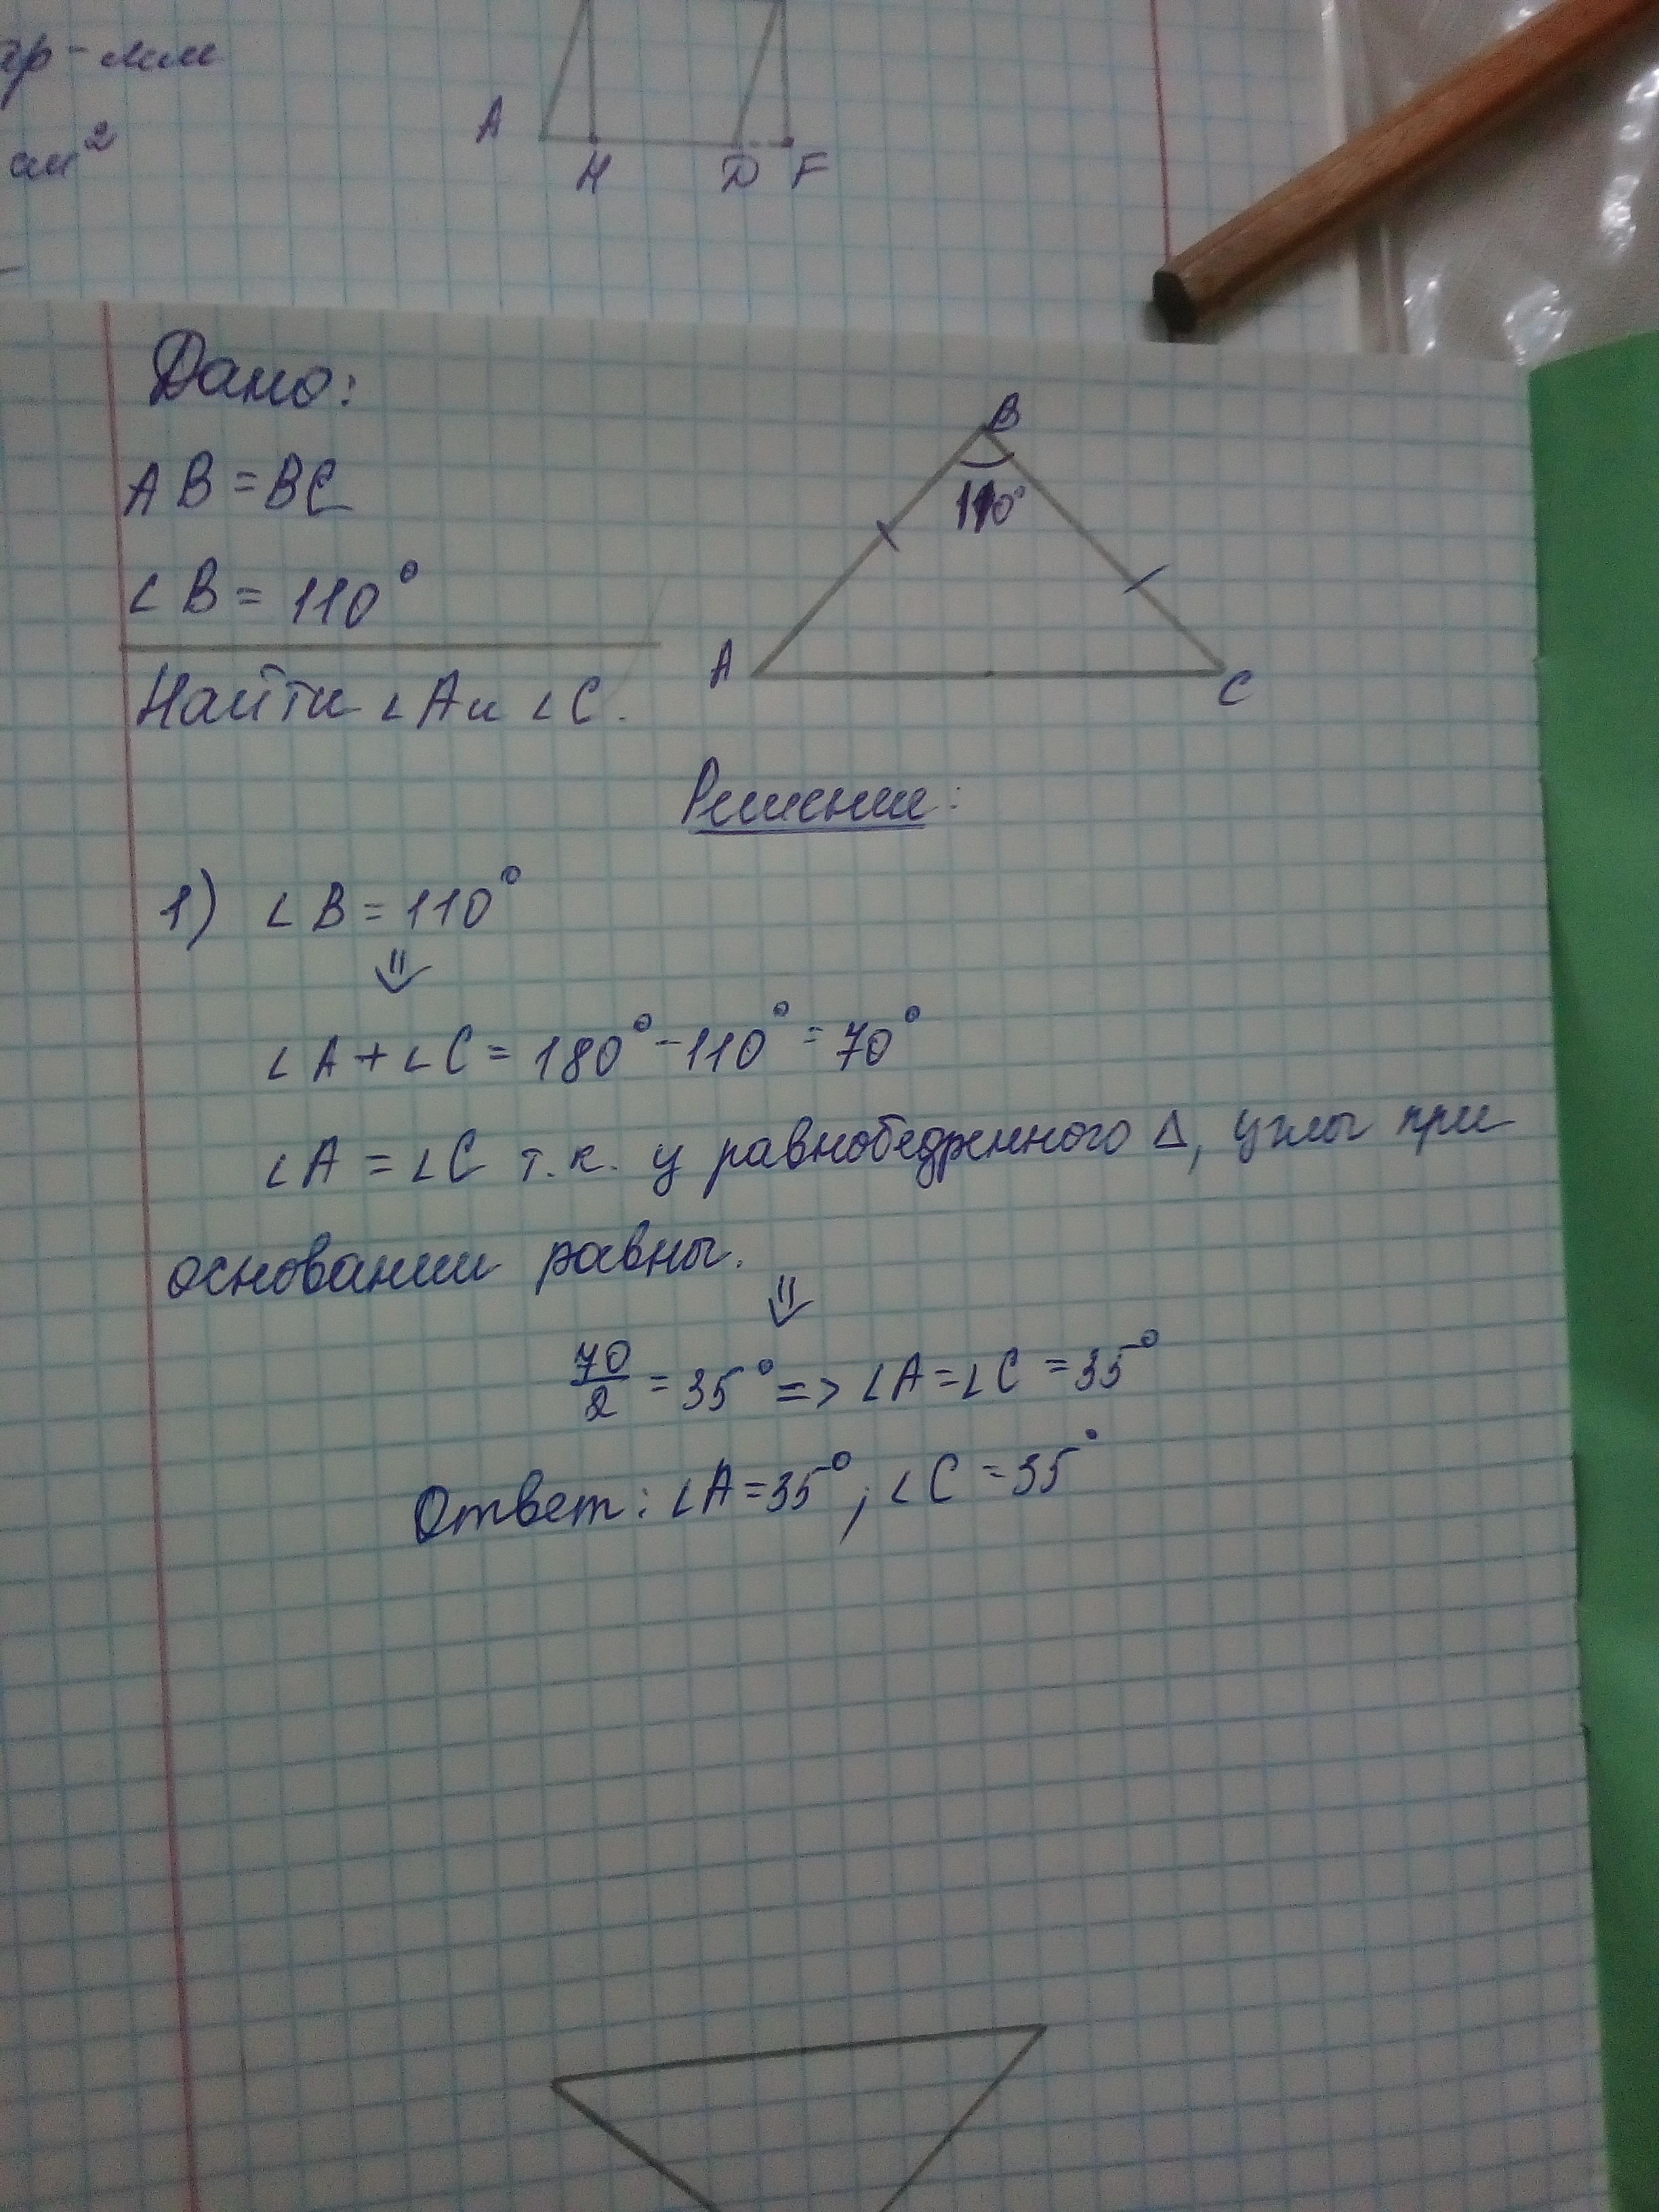 ам²
A
H D F
Дано:
AB = BC
∠B = 110°
Найти ∠A и ∠C.
B
110°
A
C
Решение:
1) ∠B = 110°
⇓
∠A + ∠C = 180° - 110° = 70°
∠A = ∠C т.к. у равнобедренного Δ, углы при
основании равны.
⇓
70/2 = 35° => ∠A = ∠C = 35°
Ответ: ∠A = 35°; ∠C = 35°